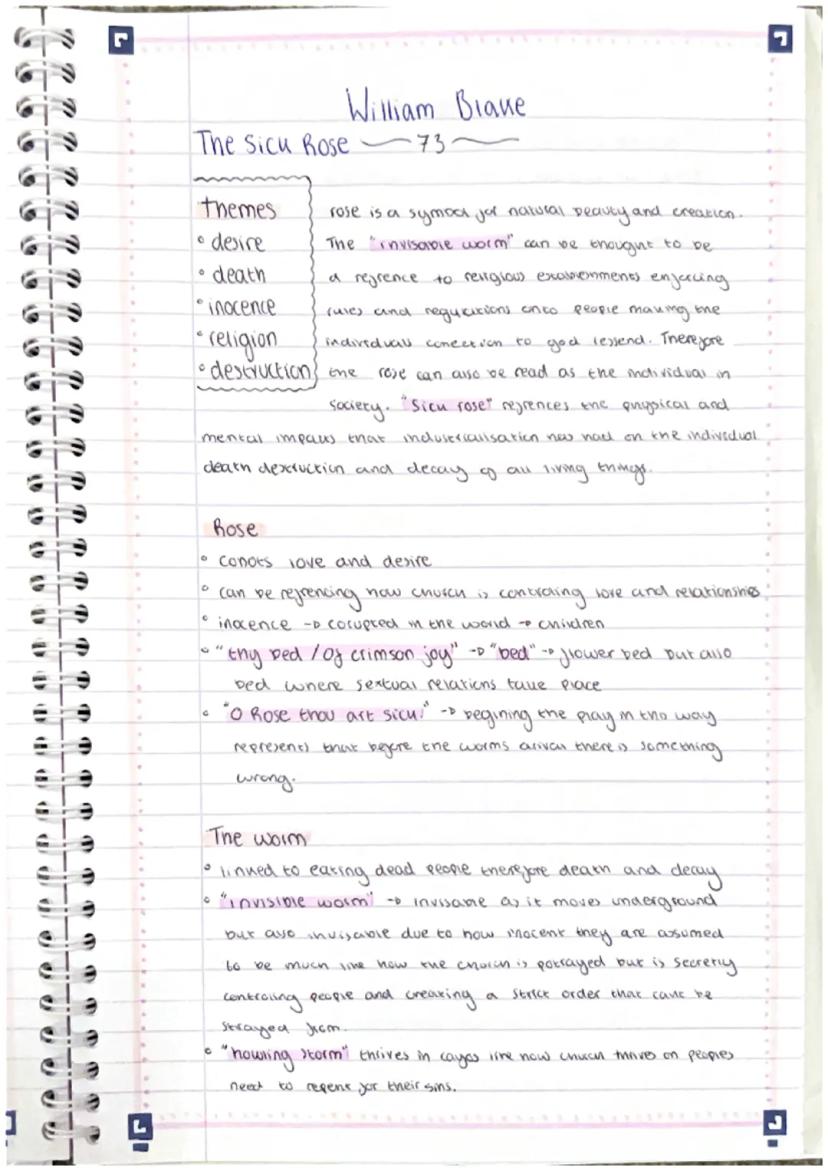 William Blake
The Sick Rose 73
themes
• desire
• death
• inocence
• religion
• destruction
rose is a symbol for natural beauty and creation.
The "invisable worm" can be thought to be
a refrence to religious establemments enforcing
rules and regulations onto people making the
individuals conection to god lessend. Therefore
the rose can also be read as the individual in
society. "Sick rose" refrences the physical and
mental impacts that industrialisation has had on the individual
death destruction and decay of all living things.
Rose
• conots love and desire
• can be refrencing how church is controling love and relationships
• inocence → corupted in the world → children
• "thy bed / Of crimson joy" → "bed" → flower bed but also
bed where sextual relations take place
• "O Rose thou art sick." → begining the play in this way
represents that before the worms arival there is something
wrong.
The worm
• linked to eating dead people therefore death and decay
• "invisible worm" → invisable as it moves underground
but also invisable due to how inocent they are assumed
to be much like how the church is potrayed but is secretly
controling people and creating a strict order that cant be
strayed from.
• "howling storm" thrives in like how church thrives on peoples
need to repent for their sins.